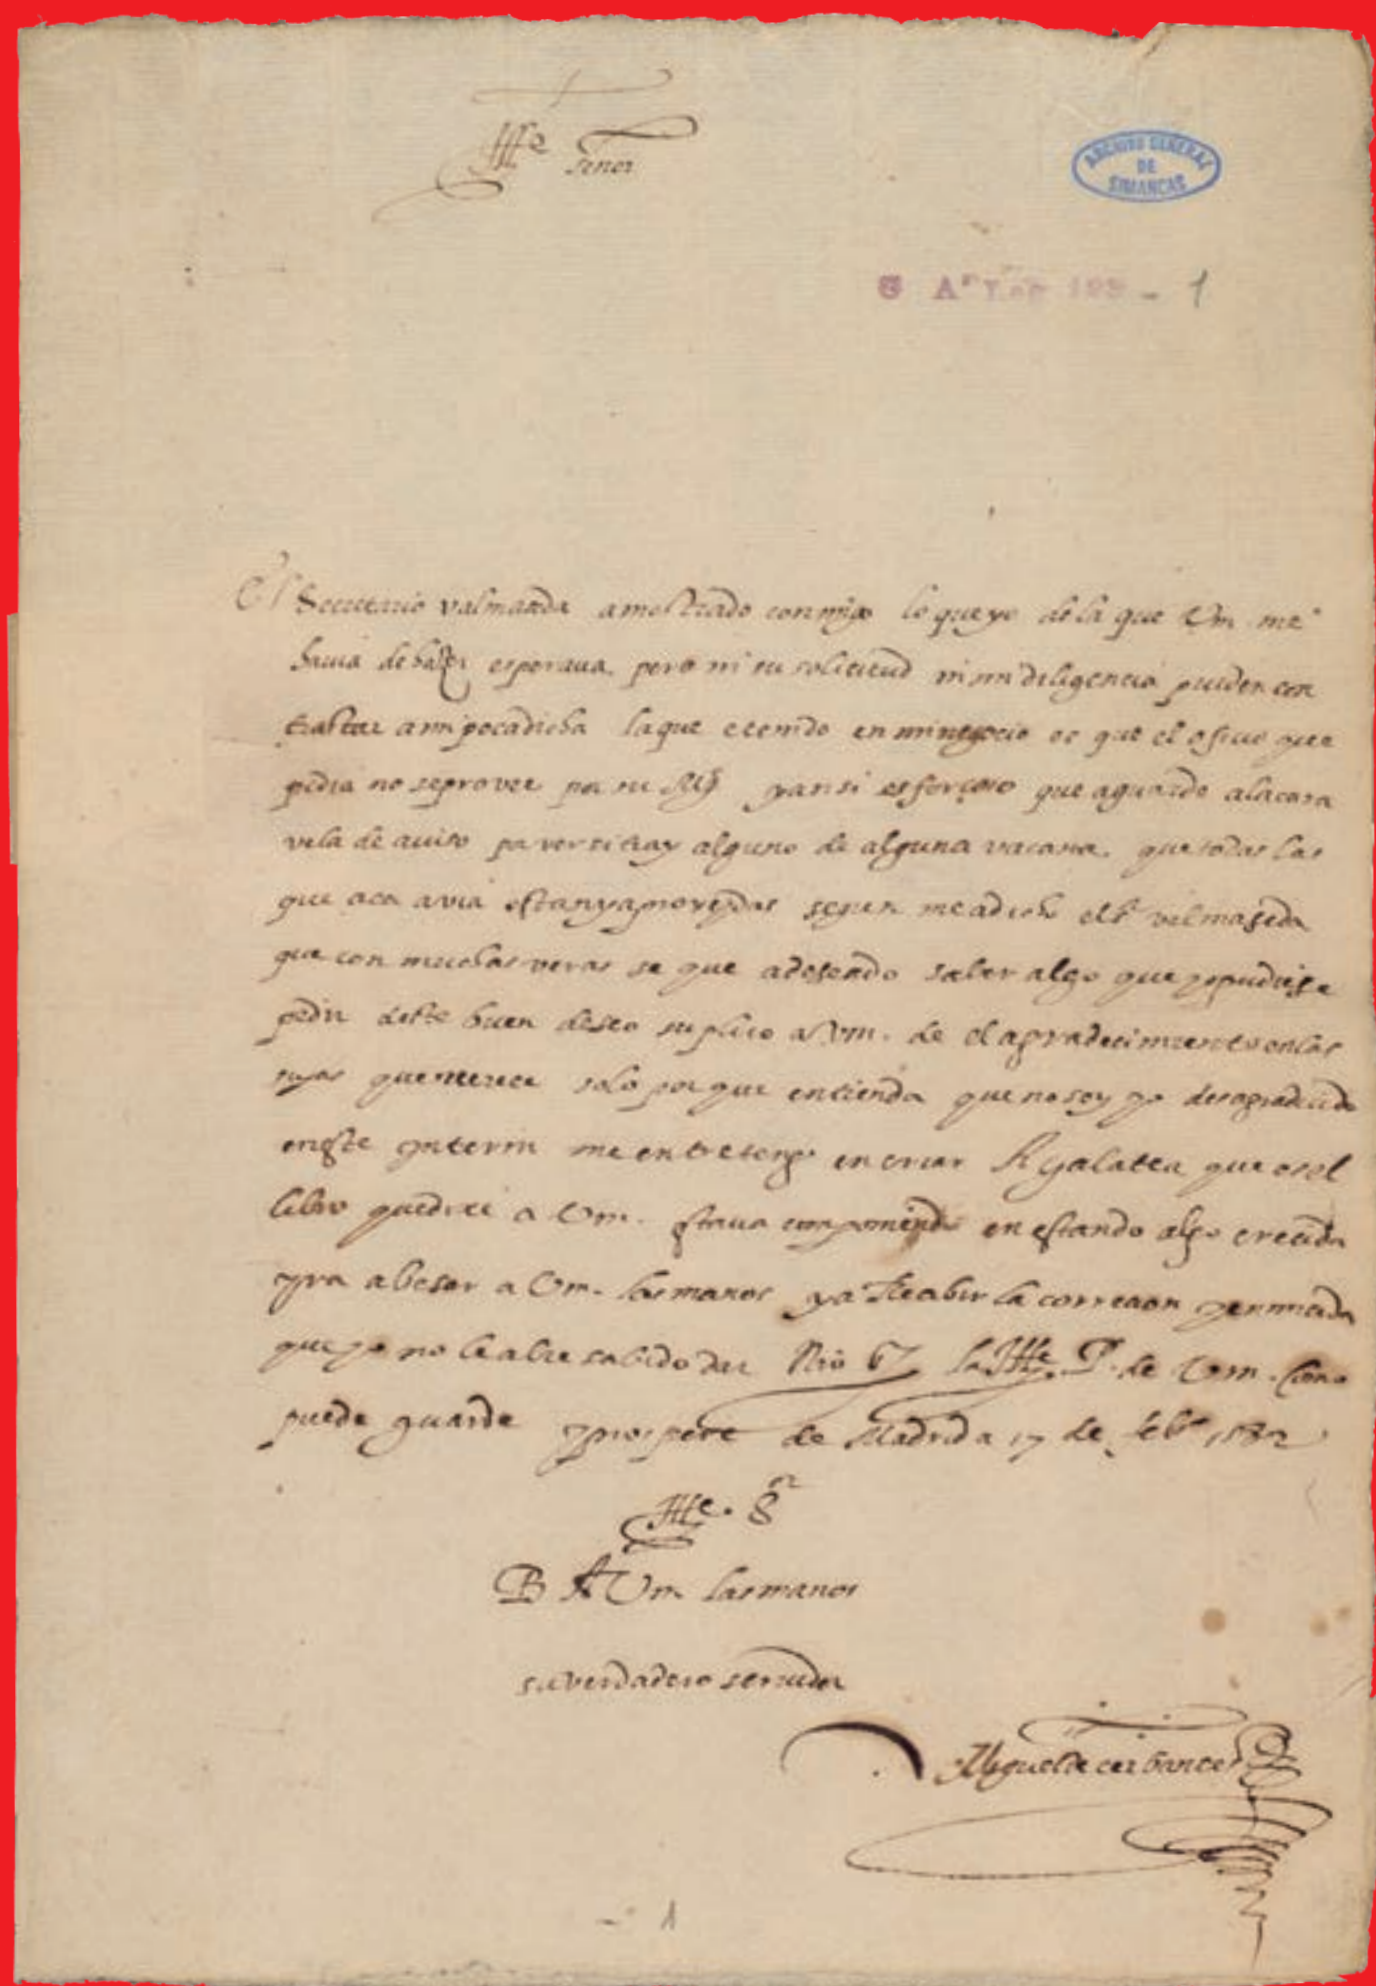 Ille Señor
ARCHIVO GENERAL
DE
SIMANCAS
G Aa Leg 123 - 1
El Secretario valmaseda a mostrado conmigo lo que yo de la que Vm. me
havia de hazer esperaua, pero ni su solicitud ni mi diligencia pueden con
trastar a mi poca dicha la que e tenido en mi negocio es que el ofiçio que
pedia no se provee por su Mgd y ansi es forçoso que aguarde a la cara
vela de auiso pa ver si tray alguno de alguna vacante que todas las
que aca avia estan ya proveydas segun me a dicho el sr valmaseda
que con muchas veras se que a deseado saber algo que yo pudiese
pedir deste buen deseo suplico a Vm. de el agradecimiento en las
suyas que merece solo por que entienda que no soy yo desagradecido
en este ynterin me entretengo en criar a galatea que es el
libro que dixe a Vm. estaua componiendo en estando algo crecida
yra a besar a Vm. las manos y a Recebir la correcion y enmienda
que yo no le abre sabido dar Nro Sr la Ille P. de Vm. como
puede guarde y prospere de Madrid a 17 de febro 1582
Ille. Sr
B A Vm las manos
su verdadero seruidor
Miguel de cerbantes
1